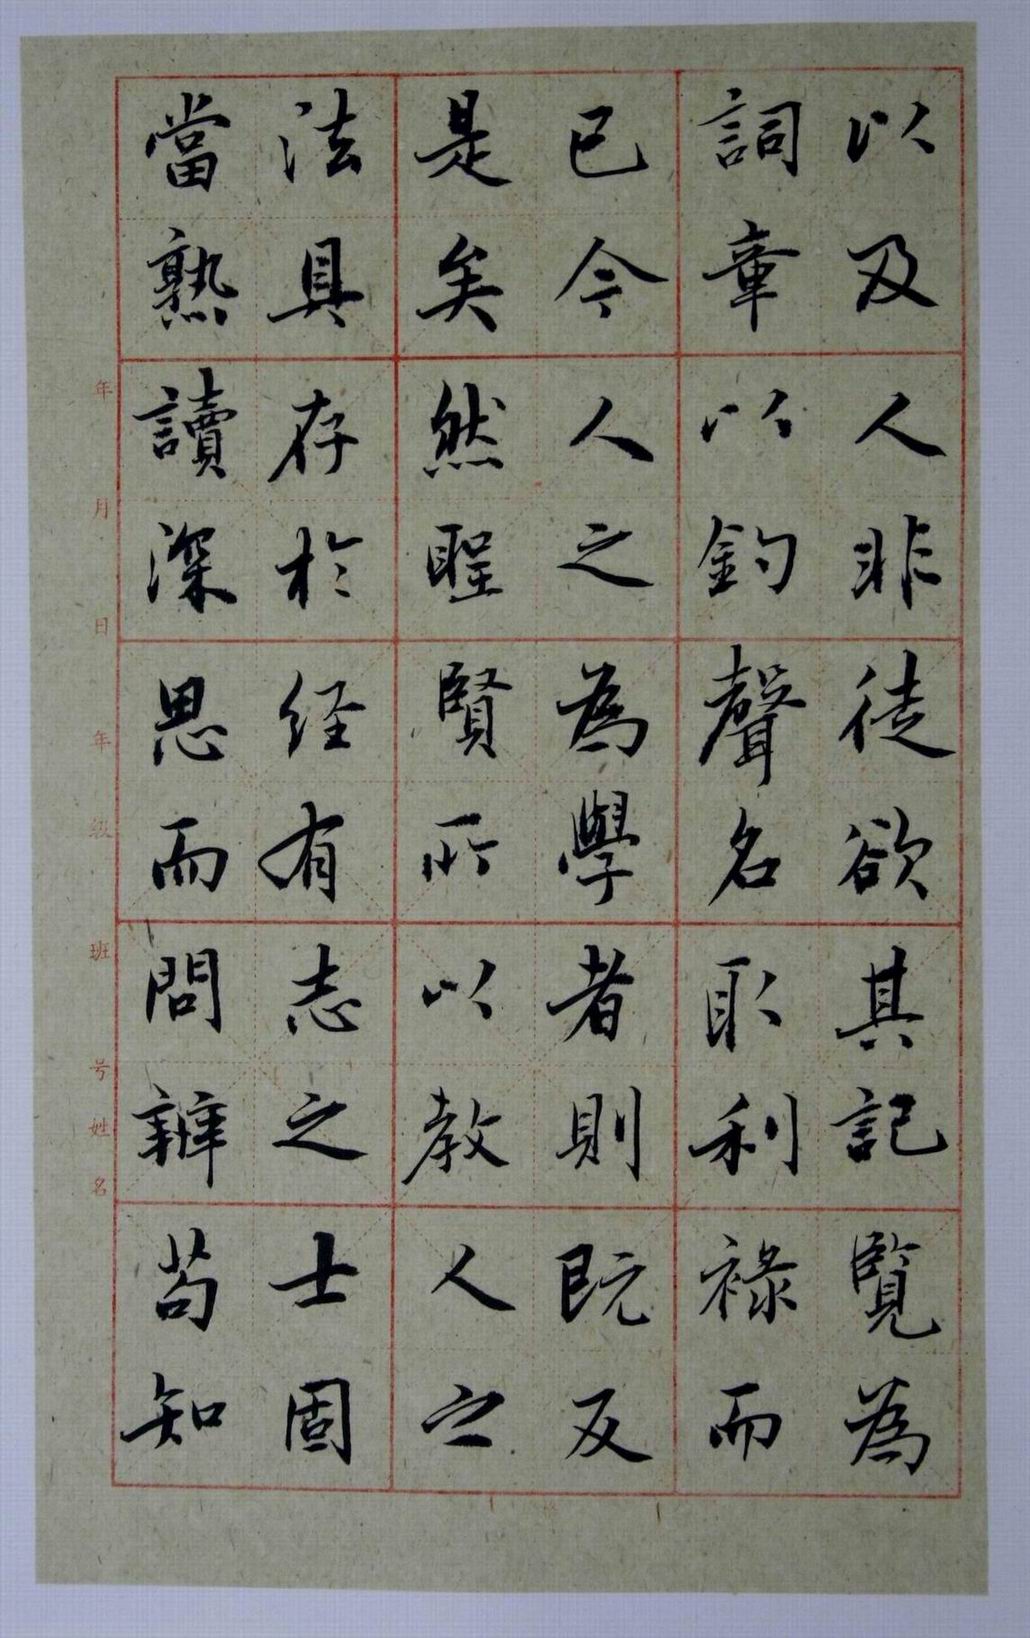 以及人非徒欲其記覽為
詞章以釣聲名取利祿而
已今人之為學者則既反
是矣然聖賢所以教人之
法具存於经有志之士固
當熟讀深思而問辨苟知
年月日年级班号姓名